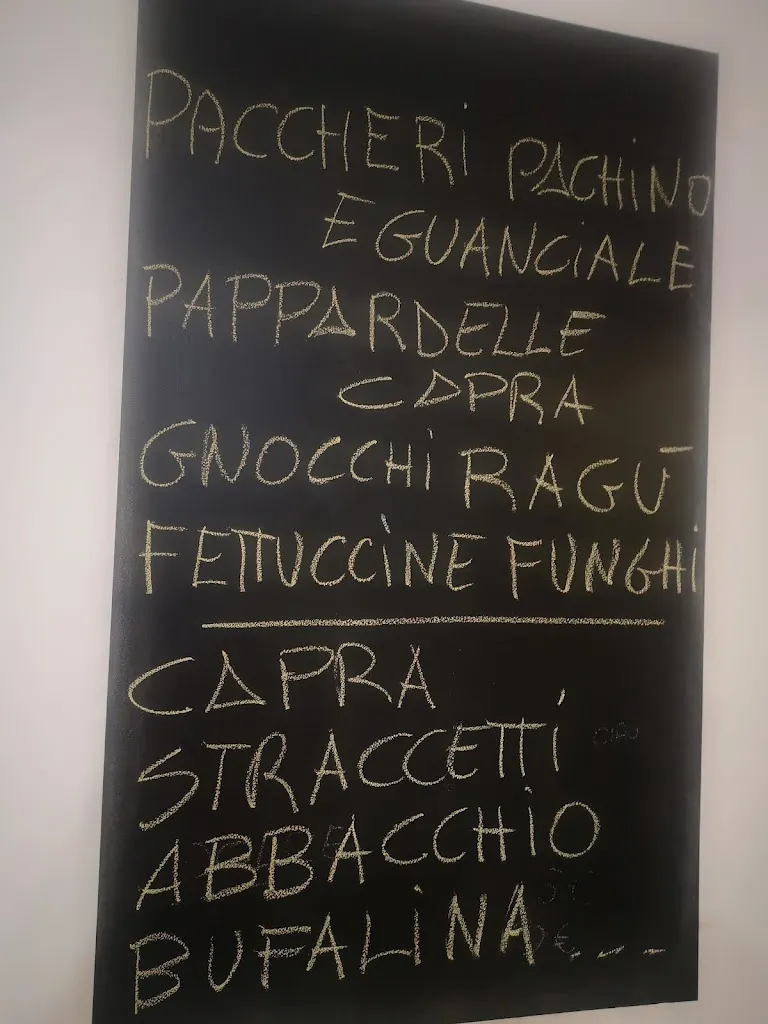 PACCHERI PACHINO
E GUANCIALE
PAPPARDELLE
CAPRA
GNOCCHI RAGÙ
FETTUCCINE FUNGHI
CAPRA
STRACCETTI
CIAO
ABBACCHIO
BUFALINA